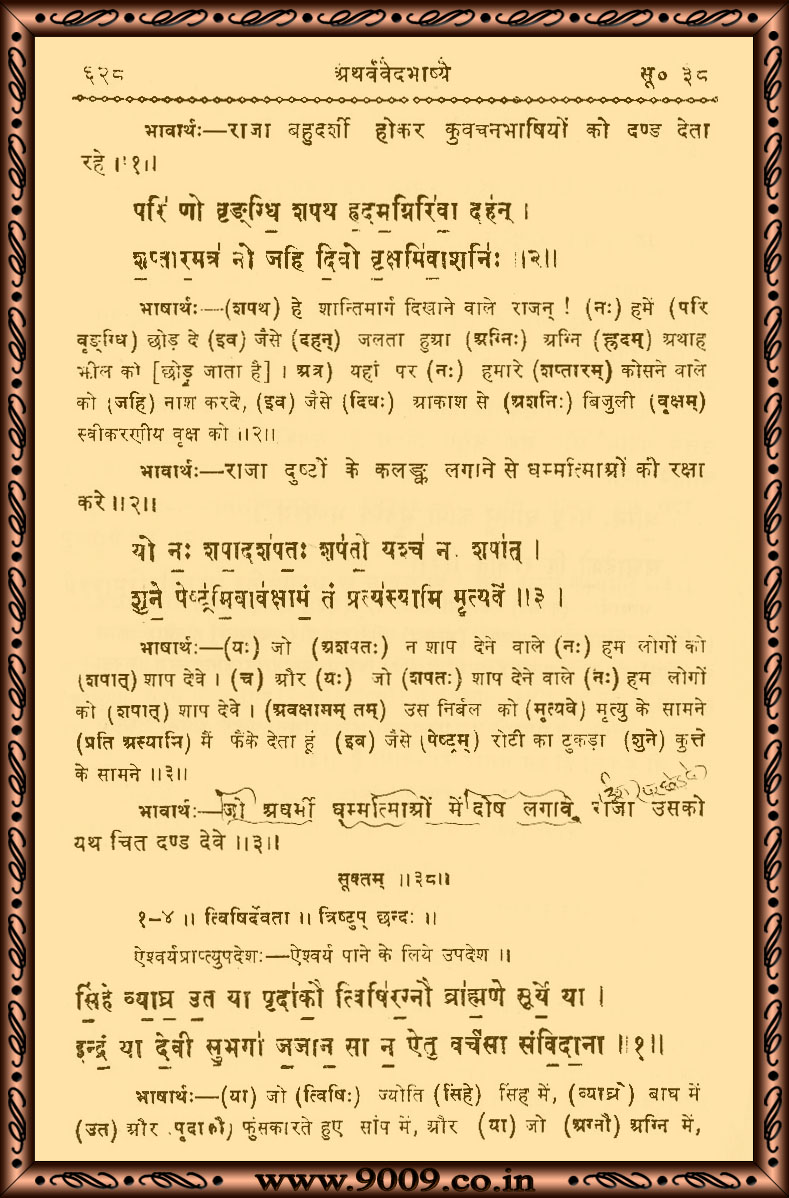 ६२८ अथर्ववेदभाष्ये सू० ३८
भावार्थः—राजा बहुदर्शी होकर कुवचनभाषियों को दण्ड देता
रहे ॥१॥
परि॑ णो वृङ्ग्धि॒ शपथ ह्र॒दम॒ग्निरि॑वा॒ दह॑न् ।
श॒प्तार॒मत्र॑ नो जहि दि॒वो वृ॒क्षमि॑वा॒शनिः॑ ॥२॥
भाषार्थः—(शपथ) हे शान्तिमार्ग दिखाने वाले राजन् ! (नः) हमें (परि
वृङ्ग्धि) छोड़ दे (इव) जैसे (दहन्) जलता हुआ (अग्निः) अग्नि (ह्रदम्) अथाह
झील को [छोड़ जाता है] । अत्र) यहां पर (नः) हमारे (शप्तारम्) कोसने वाले
को (जहि) नाश करदे, (इव) जैसे (दिवः) आकाश से (अशनिः) बिजुली (वृक्षम्)
स्वीकरणीय वृक्ष को ॥२॥
भावार्थः—राजा दुष्टों के कलङ्क लगाने से धर्म्मात्माओं की रक्षा
करे ॥२॥
यो नः॒ शपा॒दश॑पतः॒ शप॑तो॒ यश्च॑ नः शपा॑त् ।
शुने॒ पेष्ट्र॑मि॒वाव॑क्षामं॒ तं प्रत्य॑स्यामि मृ॒त्यवे॑ ॥३।
भाषार्थः—(यः) जो (अशपतः) न शाप देने वाले (नः) हम लोगों को
(शपात्) शाप देवे । (च) और (यः) जो (शपतः) शाप देने वाले (नः) हम लोगों
को (शपात्) शाप देवे । (अवक्षामम् तम्) उस निर्बल को (मृत्यवे) मृत्यु के सामने
(प्रति अस्यामि) मैं फैंके देता हूं (इव) जैसे (पेष्ट्रम्) रोटी का टुकड़ा (शुने) कुत्ते
के सामने ॥३॥
भावार्थः—जो अधर्मी धर्म्मात्माओं में दोष लगावे, राजा उसको
यथ चित दण्ड देवे ॥३॥
सूक्तम् ॥३८॥
१–४ ॥ त्विषिर्देवता ॥ त्रिष्टुप् छन्दः ॥
ऐश्वर्यप्राप्त्युपदेशः—ऐश्वर्य पाने के लिये उपदेश ॥
सिं॒हे व्या॒घ्र उ॒त या पृदा॑कौ॒ त्विषि॑र॒ग्नौ ब्रा॑ह्म॒णे सूर्ये॒ या ।
इन्द्रं॒ या दे॒वी सु॒भगा॑ ज॒जान॒ सा न॒ ऐतु॒ वर्च॑सा संविदा॒ना ॥१॥
भाषार्थः—(या) जो (त्विषिः) ज्योति (सिंहे) सिंह में, (व्याघ्रे) बाघ में
(उत) और पृदाकौ) फुंसकारते हुए सांप में, और (या) जो (अग्नौ) अग्नि में,
www.9009.co.in